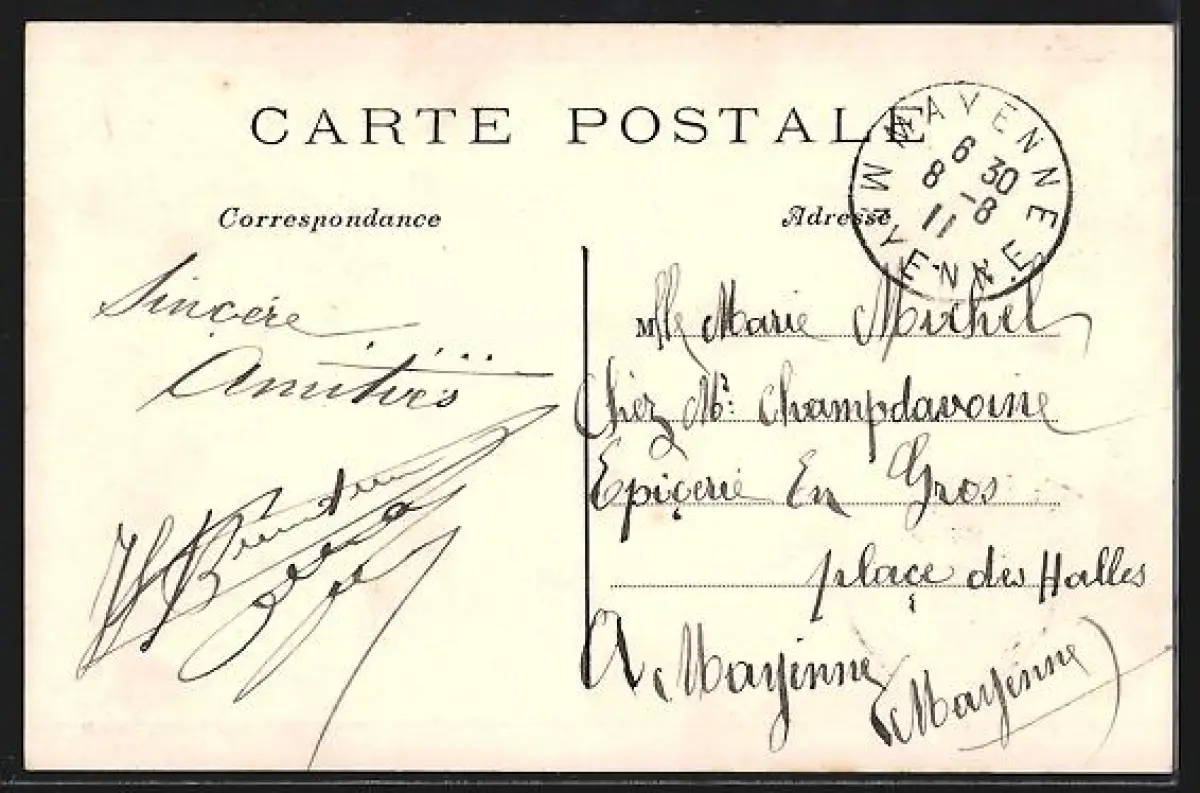 CARTE POSTALE
Correspondance
Adresse
MAYENNE
6 30
8 -8
11
MAYENNE
Sincère
Amitiés
Mlle Marie Michel
Chez Mr: Champdavoine
Epiçerie En Gros
plaçe des Halles
A Mayenne
(Mayenne)